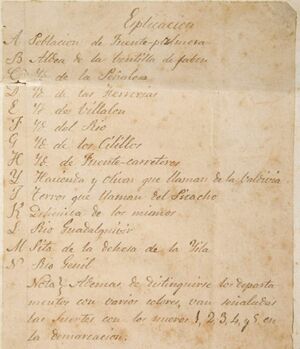 Eplicacion
A Poblacion de Fuente-palmera
B Aldea de la ventilla de
C Yd. de la Peñalosa
D Yd. de las Herrerias
E Yd. de Villalon
F Yd. del Rio
G Yd. de los Silillos
H Yd. de Fuente-carreteros
Y Hacienda y olivar que llaman de la Valdivia
J Cerros que llaman del Picacho
K de los mismos
L Rio Guadalquivir
M Sita de la dehesa de la Yila
N Rio Genil
Nota} Ademas de distinguirse los departa
mentos con varios colores, van señaladas
las suertes con los nueros 1, 2, 3, 4, y 5 en
la demarcacion.